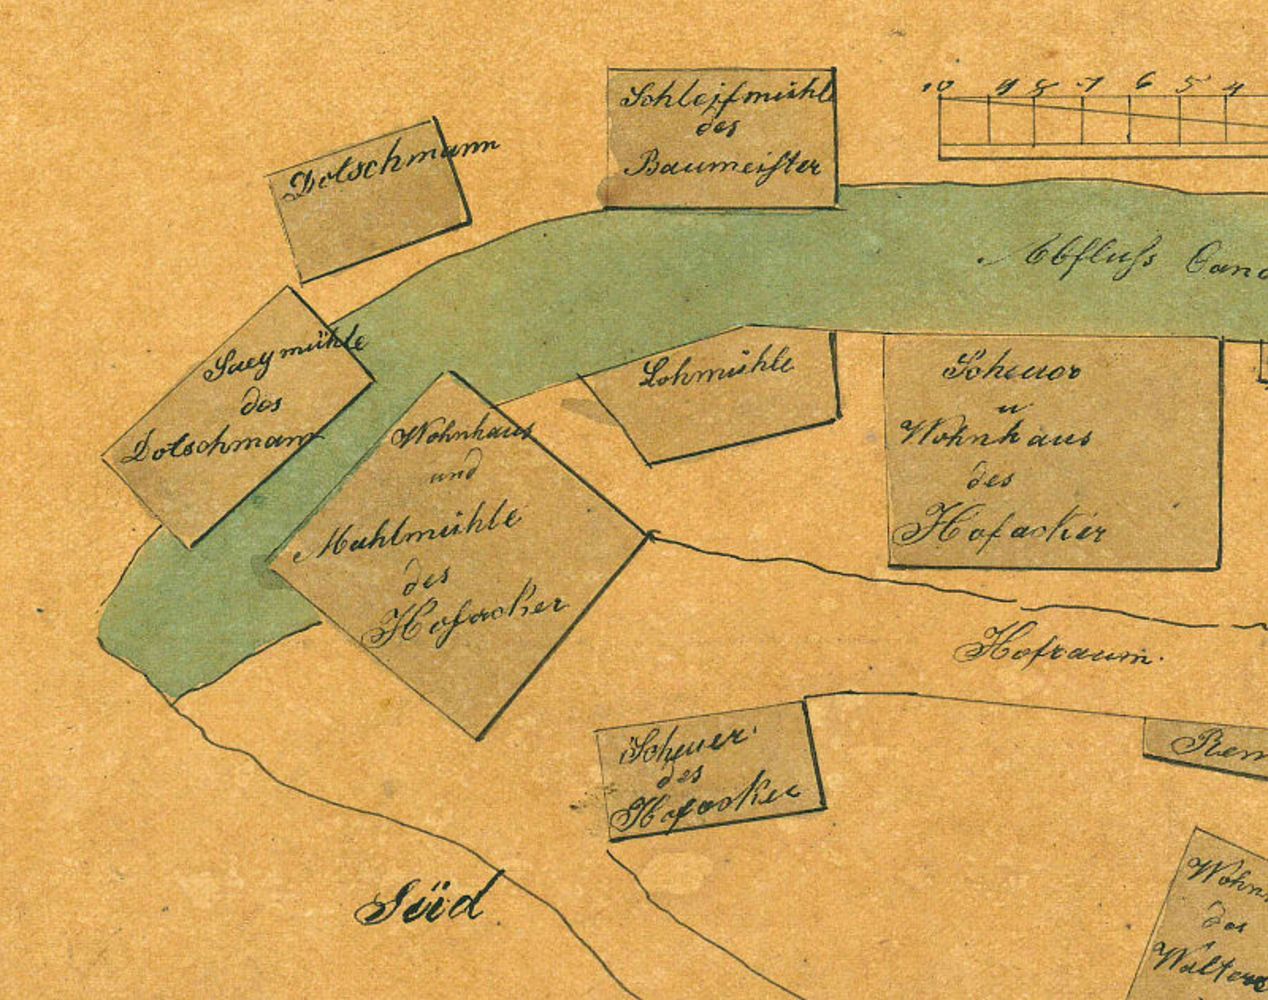 10 9 8 7 6 5 4
Schleifmühl
des
Baumeister
Dotschmann
Abfluss Cana
Saeymühle
des
Dotschmann
Lohmühle
Scheuer
u
Wohnhaus
des
Hofacker
Wohnhaus
und
Mahlmühle
des
Hofacker
Hofraum.
Scheuer
des
Hofacker
Rem
Süd
Wohn
des